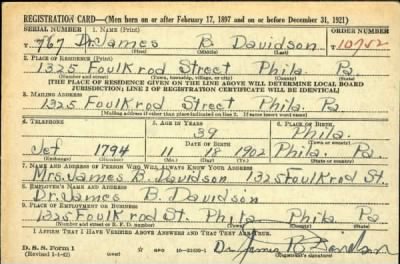 REGISTRATION CARD—(Men born on or after February 17, 1897 and on or before December 31, 1921)
SERIAL NUMBER 1. NAME (Print) ORDER NUMBER
T 767 Dr. James B. Davidson 10752
(First) (Middle) (Last)
2. PLACE OF RESIDENCE (Print)
1325 Foulkrod Street Phila. Pa
(Number and street) (Town, township, village, or city) (County) (State)
[THE PLACE OF RESIDENCE GIVEN ON THE LINE ABOVE WILL DETERMINE LOCAL BOARD
JURISDICTION; LINE 2 OF REGISTRATION CERTIFICATE WILL BE IDENTICAL]
3. MAILING ADDRESS
1325 Foulkrod Street Phila. Pa
[Mailing address if other than place indicated on line 2. If same insert word same]
4. TELEPHONE 5. AGE IN YEARS 6. PLACE OF BIRTH
39 Phila.
DATE OF BIRTH
Jef 1794 11 18 1902 Phila. Pa.
(Exchange) (Number) (Mo.) (Day) (Yr.) (State or country)
7. NAME AND ADDRESS OF PERSON WHO WILL ALWAYS KNOW YOUR ADDRESS
Mrs. James B. Davidson 1325 Foulkrod St.
8. EMPLOYER'S NAME AND ADDRESS
Dr. James B. Davidson
9. PLACE OF EMPLOYMENT OR BUSINESS
1325 Foulkrod St. Phila Phila. Pa
(Number and street or R. F. D. number) (Town) (County) (State)
I AFFIRM THAT I HAVE VERIFIED ABOVE ANSWERS AND THAT THEY ARE TRUE.
D. S. S. Form 1
(Revised 1-1-42) (over) GPO Dr. James B. Davidson